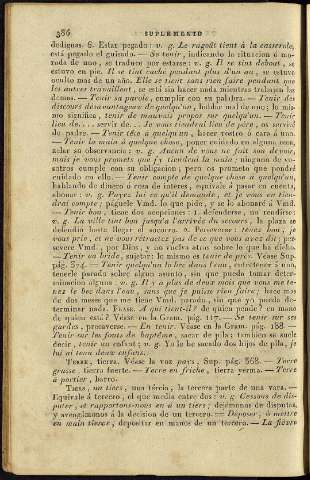 386 SUPLEMENTO
dedignas. §. Estar pegado: v. g. Le ragoût tient à la casserole,
está pegado el guisado. — Se tenir, indicando la situacion ó mo-
rada de uno, se traduce por estarse: v. g. Il se tint debout, se
estuvo en pie. Il se tint caché pendant plus d'un an, se estuvo
oculto mas de un año. Elle se tient sans rien faire pendant que
les autres travaillent, se está sin hacer nada mientras trabajan las
demas. — Tenir sa parole, cumplir con su palabra. — Tenir des
discours désavantageux de quelqu'un, hablar mal de uno; lo mis-
mo significa, tenir de mauvais propos sur quelqu'un. — Tenir
lieu de... servir de... Je vous tiendrai lieu de père, os serviré
de padre. — Tenir tête à quelqu'un, hacer rostro ó cara á uno.
— Tenir la main à quelque chose, poner cuidado en alguna cosa,
zelar su observancia: v. g. Aucun de vous ne fait son devoir,
mais je vous promets que j'y tiendrai la main; ninguno de vo-
sotros cumple con su obligacion; pero os prometo que pondré
cuidado en ello. — Tenir compte de quelque chose à quelqu'un,
hablando de dinero ó cosa de interes, equivale á pasar en cuenta,
abonar: v. g. Payez lui ce qu'il demande, et je vous en tien-
drai compte; páguele Vmd. lo que pide, y se lo abonaré á Vmd.
— Tenir bon, tiene dos acepciones: 1. defenderse, no rendirse:
v. g. La ville tint bon jusqu'à l'arrivée du secours, la plaza se
defendió hasta llegar el socorro. 2. Perseverar: tenez bon, je
vous prie, et ne vous rétractez pas de ce que vous avez dit; per-
severe Vmd., por Dios, y no vuelva atras sobre lo que ha dicho.
— Tenir en bride, sujetar: lo mismo es tenir de près. Véase Sup.
pág. 574. — Tenir quelqu'un le bec dans l'eau, entretener á uno,
tenerle parado sobre algun asunto, sin que pueda tomar deter-
minacion alguna: v. g. Il y a plus de deux mois que vous me te-
nez le bec dans l'eau, sans que je puisse rien faire; hace mas
de dos meses que me tiene Vmd. parado, sin que yo pueda de-
terminar nada. Y esse. A quoi tient-il? de quién pende? en mano
de quién está? Véase en la Gram. pág. 177. — Se tenir sur ses
gardes, precaverse. — En tenir. Véase en la Gram. pág. 188. —
Tenir sur les fonts de baptême, sacar de pila: tambien se suele
decir, tenir un enfant; v. g. Yo le he sacado dos hijos de pila, je
lui ai tenu deux enfans.
Terre, tierra. Véase la voz pays, Sup. pág. 568. — Terre
grasse, tierra fuerte. — Terre en friche, tierra yerma. — Terre
à portier, barro.
Tiers, un tiers, una tércia, la tercera parte de una vara. —
Equivale á tercero, el que media entre dos: v. g. Cessons de dis-
puter, et rapportons-nous en à un tiers; dejémonos de disputas,
y avengámonos á la decision de un tercero. — Déposer, ó mettre
en main tierce, depositar en manos de un tercero. — La fièvre